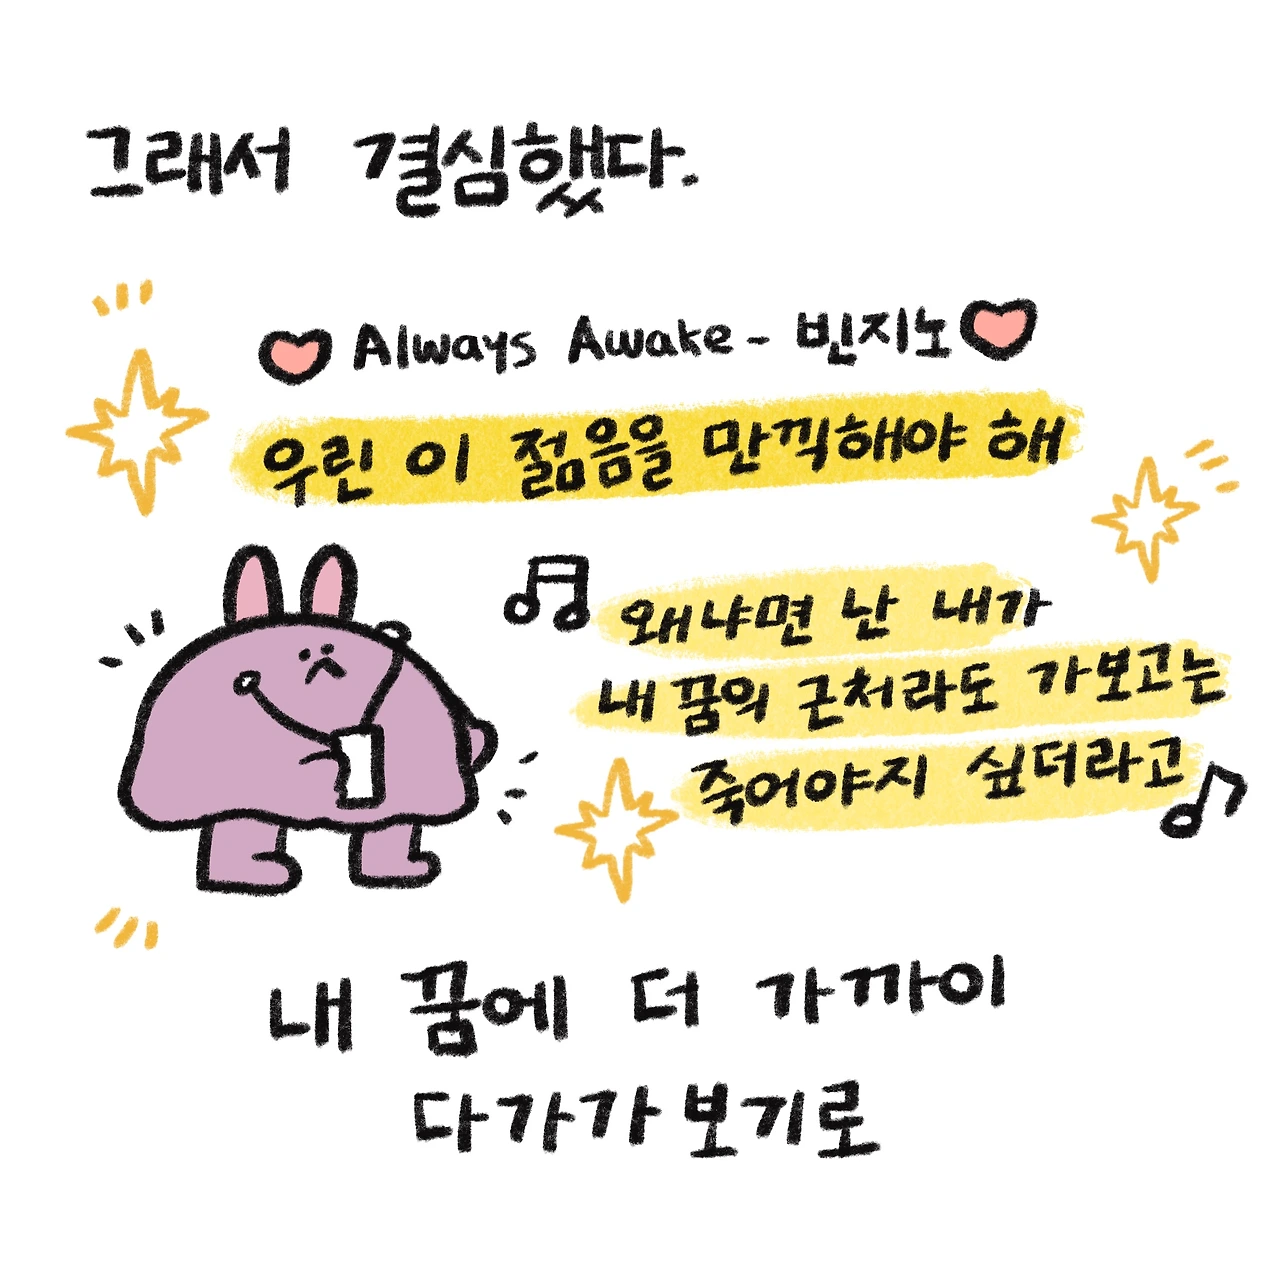 그래서 결심했다.
Always Awake - 빈지노
우린 이 젊음을 만끽해야 해
왜냐면 난 내가
내 꿈의 근처라도 가보고는
죽어야지 싶더라고
내 꿈에 더 가까이
다가가 보기로